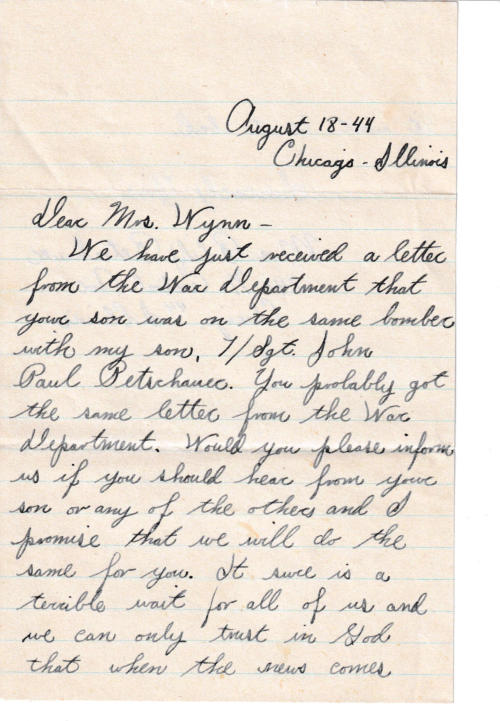 August 18-44
Chicago - Illinois
Dear Mrs. Wynn -
We have just received a letter
from the War Department that
your son was on the same bomber
with my son, T/Sgt. John
Paul Petschauer. You probably got
the same letter from the War
Department. Would you please inform
us if you should hear from your
son or any of the others and I
promise that we will do the
same for you. It sure is a
terrible wait for all of us and
we can only trust in God
that when the news comes